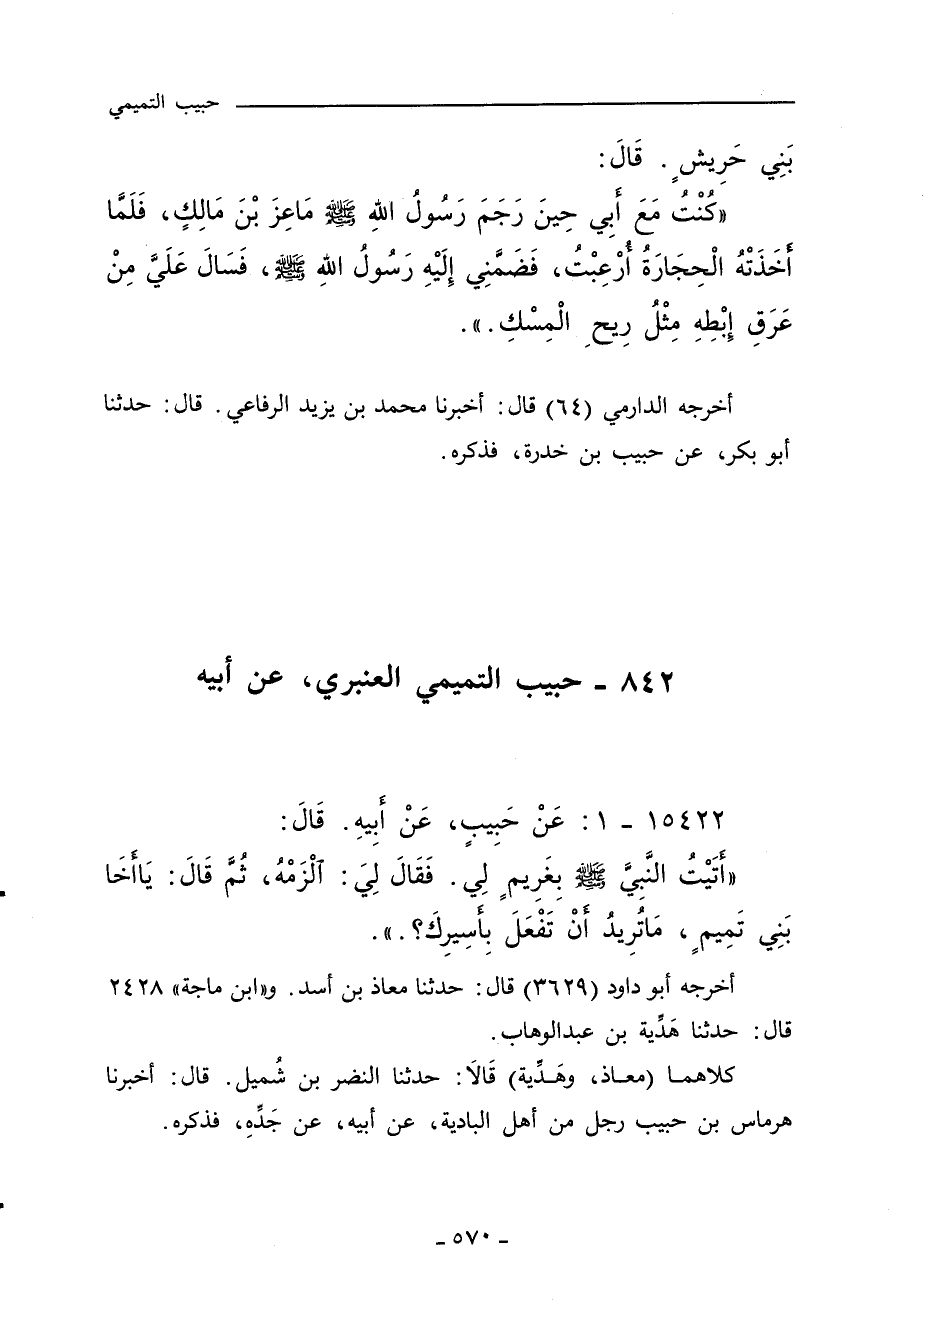 حبيب التميمي
بَنِي حَرِيشٍ . قَالَ:
«كُنْتُ مَعَ أَبِي حِينَ رَجَمَ رَسُولُ اللهِ ﷺ مَاعِزَ بْنَ مَالِكٍ، فَلَمَّا
أَخَذَتْهُ الْحِجَارَةُ أُرْعِبْتُ، فَضَمَّنِي إِلَيْهِ رَسُولُ اللهِ ﷺ، فَسَالَ عَلَيَّ مِنْ
عَرَقِ إِبْطِهِ مِثْلُ رِيحِ الْمِسْكِ.».
أخرجه الدارمي (٦٤) قال: أخبرنا محمد بن يزيد الرفاعي. قال: حدثنا
أبو بكر، عن حبيب بن خدرة، فذكره.
٨٤٢ ـ حبيب التميمي العنبري، عن أبيه
١٥٤٢٢ ـ ١: عَنْ حَبِيبٍ، عَنْ أَبِيهِ. قَالَ:
«أَتَيْتُ النَّبِيَّ ﷺ بِغَرِيمٍ لِي. فَقَالَ لِيَ: ٱلْزَمْهُ، ثُمَّ قَالَ: يَاأَخَا
بَنِي تَمِيمٍ، مَاتُرِيدُ أَنْ تَفْعَلَ بِأَسِيرِكَ؟.».
أخرجه أبو داود (٣٦٢٩) قال: حدثنا معاذ بن أسد. و«ابن ماجة» ٢٤٢٨
قال: حدثنا هَدِّية بن عبدالوهاب.
كلاهمـا (معـاذ، وهَـدِّية) قَالَا: حدثنا النضر بن شُميل. قال: أخبرنا
هرماس بن حبيب رجل من أهل البادية، عن أبيه، عن جَدِّهِ، فذكره.
ـ ٥٧٠ ـ